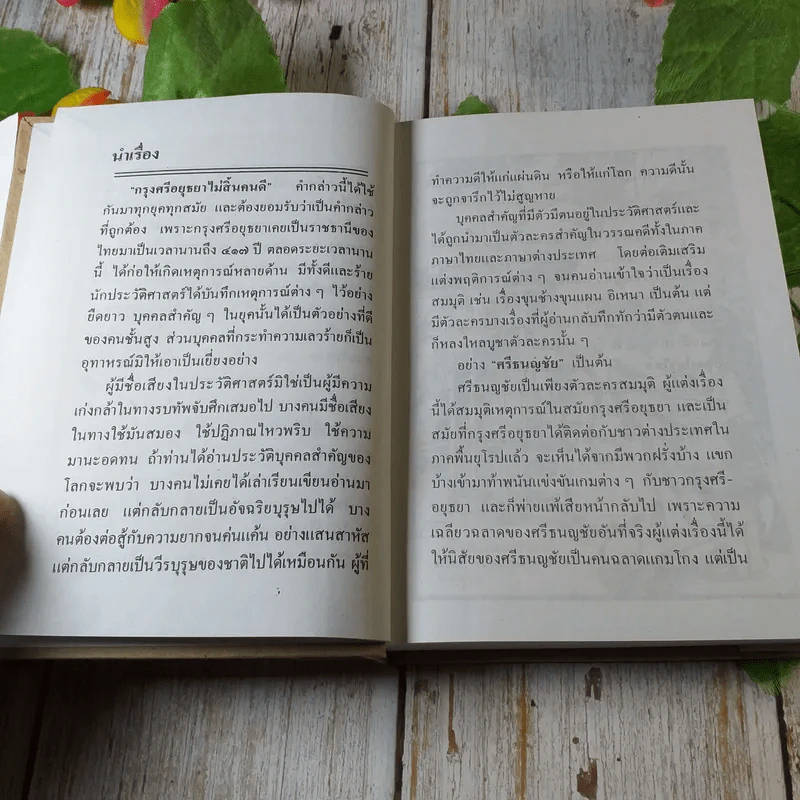 นำเรื่อง
“กรุงศรีอยุธยาไม่สิ้นคนดี” คำกล่าวนี้ได้ใช้
กันมาทุกยุคทุกสมัย และต้องยอมรับว่าเป็นคำกล่าว
ที่ถูกต้อง เพราะกรุงศรีอยุธยาเคยเป็นราชธานีของ
ไทยมาเป็นเวลานานถึง ๔๑๗ ปี ตลอดระยะเวลานาน
นี้ ได้ก่อให้เกิดเหตุการณ์หลายด้าน มีทั้งดีและร้าย
นักประวัติศาสตร์ได้บันทึกเหตุการณ์ต่าง ๆ ไว้อย่าง
ยืดยาว บุคคลสำคัญ ๆ ในยุคนั้นได้เป็นตัวอย่างที่ดี
ของคนชั้นสูง ส่วนบุคคลที่กระทำความเลวร้ายก็เป็น
อุทาหรณ์มิให้เอาเป็นเยี่ยงอย่าง
ผู้มีชื่อเสียงในประวัติศาสตร์มิใช่เป็นผู้มีความ
เก่งกล้าในทางรบทัพจับศึกเสมอไป บางคนมีชื่อเสียง
ในทางใช้มันสมอง ใช้ปฏิภาณไหวพริบ ใช้ความ
มานะอดทน ถ้าท่านได้อ่านประวัติบุคคลสำคัญของ
โลกจะพบว่า บางคนไม่เคยได้เล่าเรียนเขียนอ่านมา
ก่อนเลย แต่กลับกลายเป็นอัจฉริยบุรุษไปได้ บาง
คนต้องต่อสู้กับความยากจนค่นแค้น อย่างแสนสาหัส
แต่กลับกลายเป็นวีรบุรุษของชาติไปได้เหมือนกัน ผู้ที่
ทำความดีให้แก่แผ่นดิน หรือให้แก่โลก ความดีนั้น
จะถูกจารึกไว้ไม่สูญหาย
บุคคลสำคัญที่มีตัวมีตนอยู่ในประวัติศาสตร์และ
ได้ถูกนำมาเป็นตัวละครสำคัญในวรรณคดีทั้งในภาค
ภาษาไทยและภาษาต่างประเทศ โดยต่อเติมเสริม
แต่งพฤติการณ์ต่าง ๆ จนคนอ่านเข้าใจว่าเป็นเรื่อง
สมมุติ เช่น เรื่องขุนช้างขุนแผน อิเหนา เป็นต้น แต่
มีตัวละครบางเรื่องที่ผู้อ่านกลับทึกทักว่ามีตัวตนและ
ก็หลงใหลบูชาตัวละครนั้น ๆ
อย่าง “ศรีธนญชัย” เป็นต้น
ศรีธนญชัยเป็นเพียงตัวละครสมมุติ ผู้แต่งเรื่อง
นี้ได้สมมุติเหตุการณ์ในสมัยกรุงศรีอยุธยา และเป็น
สมัยที่กรุงศรีอยุธยาได้ติดต่อกับชาวต่างประเทศใน
ภาคพื้นยุโรปแล้ว จะเห็นได้จากมีพวกฝรั่งบ้าง แขก
บ้างเข้ามาท้าพนันแข่งขันเกมต่าง ๆ กับชาวกรุงศรี-
อยุธยา และก็พ่ายแพ้เสียหน้ากลับไป เพราะความ
เฉลียวฉลาดของศรีธนญชัยอันที่จริงผู้แต่งเรื่องนี้ได้
ให้นิสัยของศรีธนญชัยเป็นคนฉลาดแกมโกง แต่เป็น